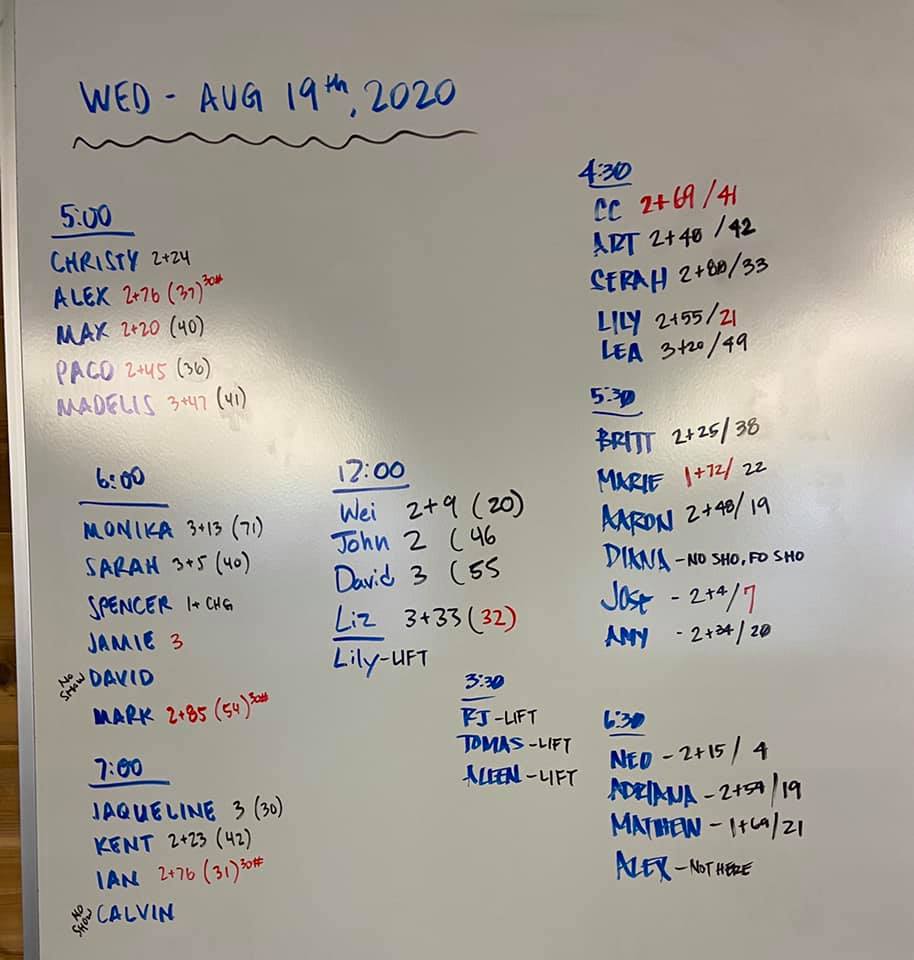 WED - AUG 19th, 2020
5:00
CHRISTY 2+24
ALEX 2+76 (37) 30#
MAX 2+20 (40)
PACO 2+45 (36)
MADELIS 3+47 (41)
6:00
MONIKA 3+13 (71)
SARAH 3+5 (40)
SPENCER 1+ CHG
JAMIE 3
NO SHOW DAVID
MARK 2+85 (54) 30#
7:00
JAQUELINE 3 (30)
KENT 2+23 (42)
IAN 2+76 (31) 30#
NO SHOW CALVIN
12:00
Wei 2+9 (20)
John 2 (46
David 3 (55
Liz 3+33 (32)
Lily-LIFT
3:30
RJ -LIFT
TOMAS -LIFT
ALLEN - LIFT
4:30
CC 2+69/41
ART 2+40 /42
SERAH 2+80/33
LILY 2+55/21
LEA 3+20/49
5:30
BRITT 2+25/38
MARIE 1+72/ 22
AARON 2+48/19
DIANA -NO SHO, FO SHO
JOSE - 2+4/7
AMY - 2+34/20
6:30
NED - 2+15/ 4
ADRIANA - 2+54/19
MATHEW - 1+69/21
ALEX - NOT HERE